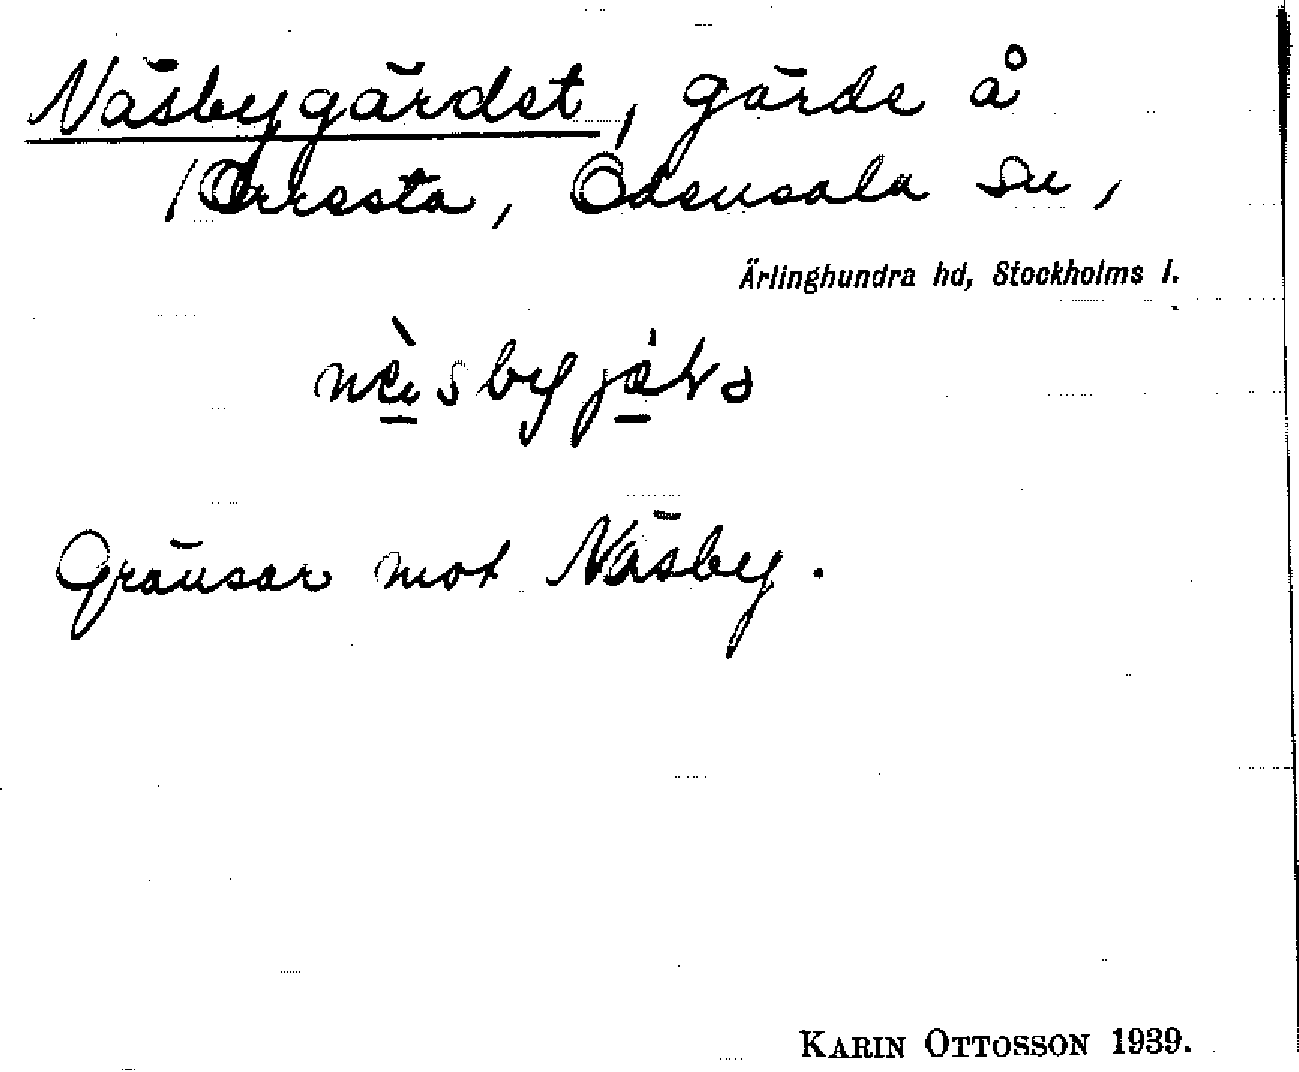 Näsbygärdet, gärde å
/Orresta, Odensala sn,
Ärlinghundra hd, Stockholms l.
Gränsar mot Näsby.
KARIN OTTOSSON 1939.